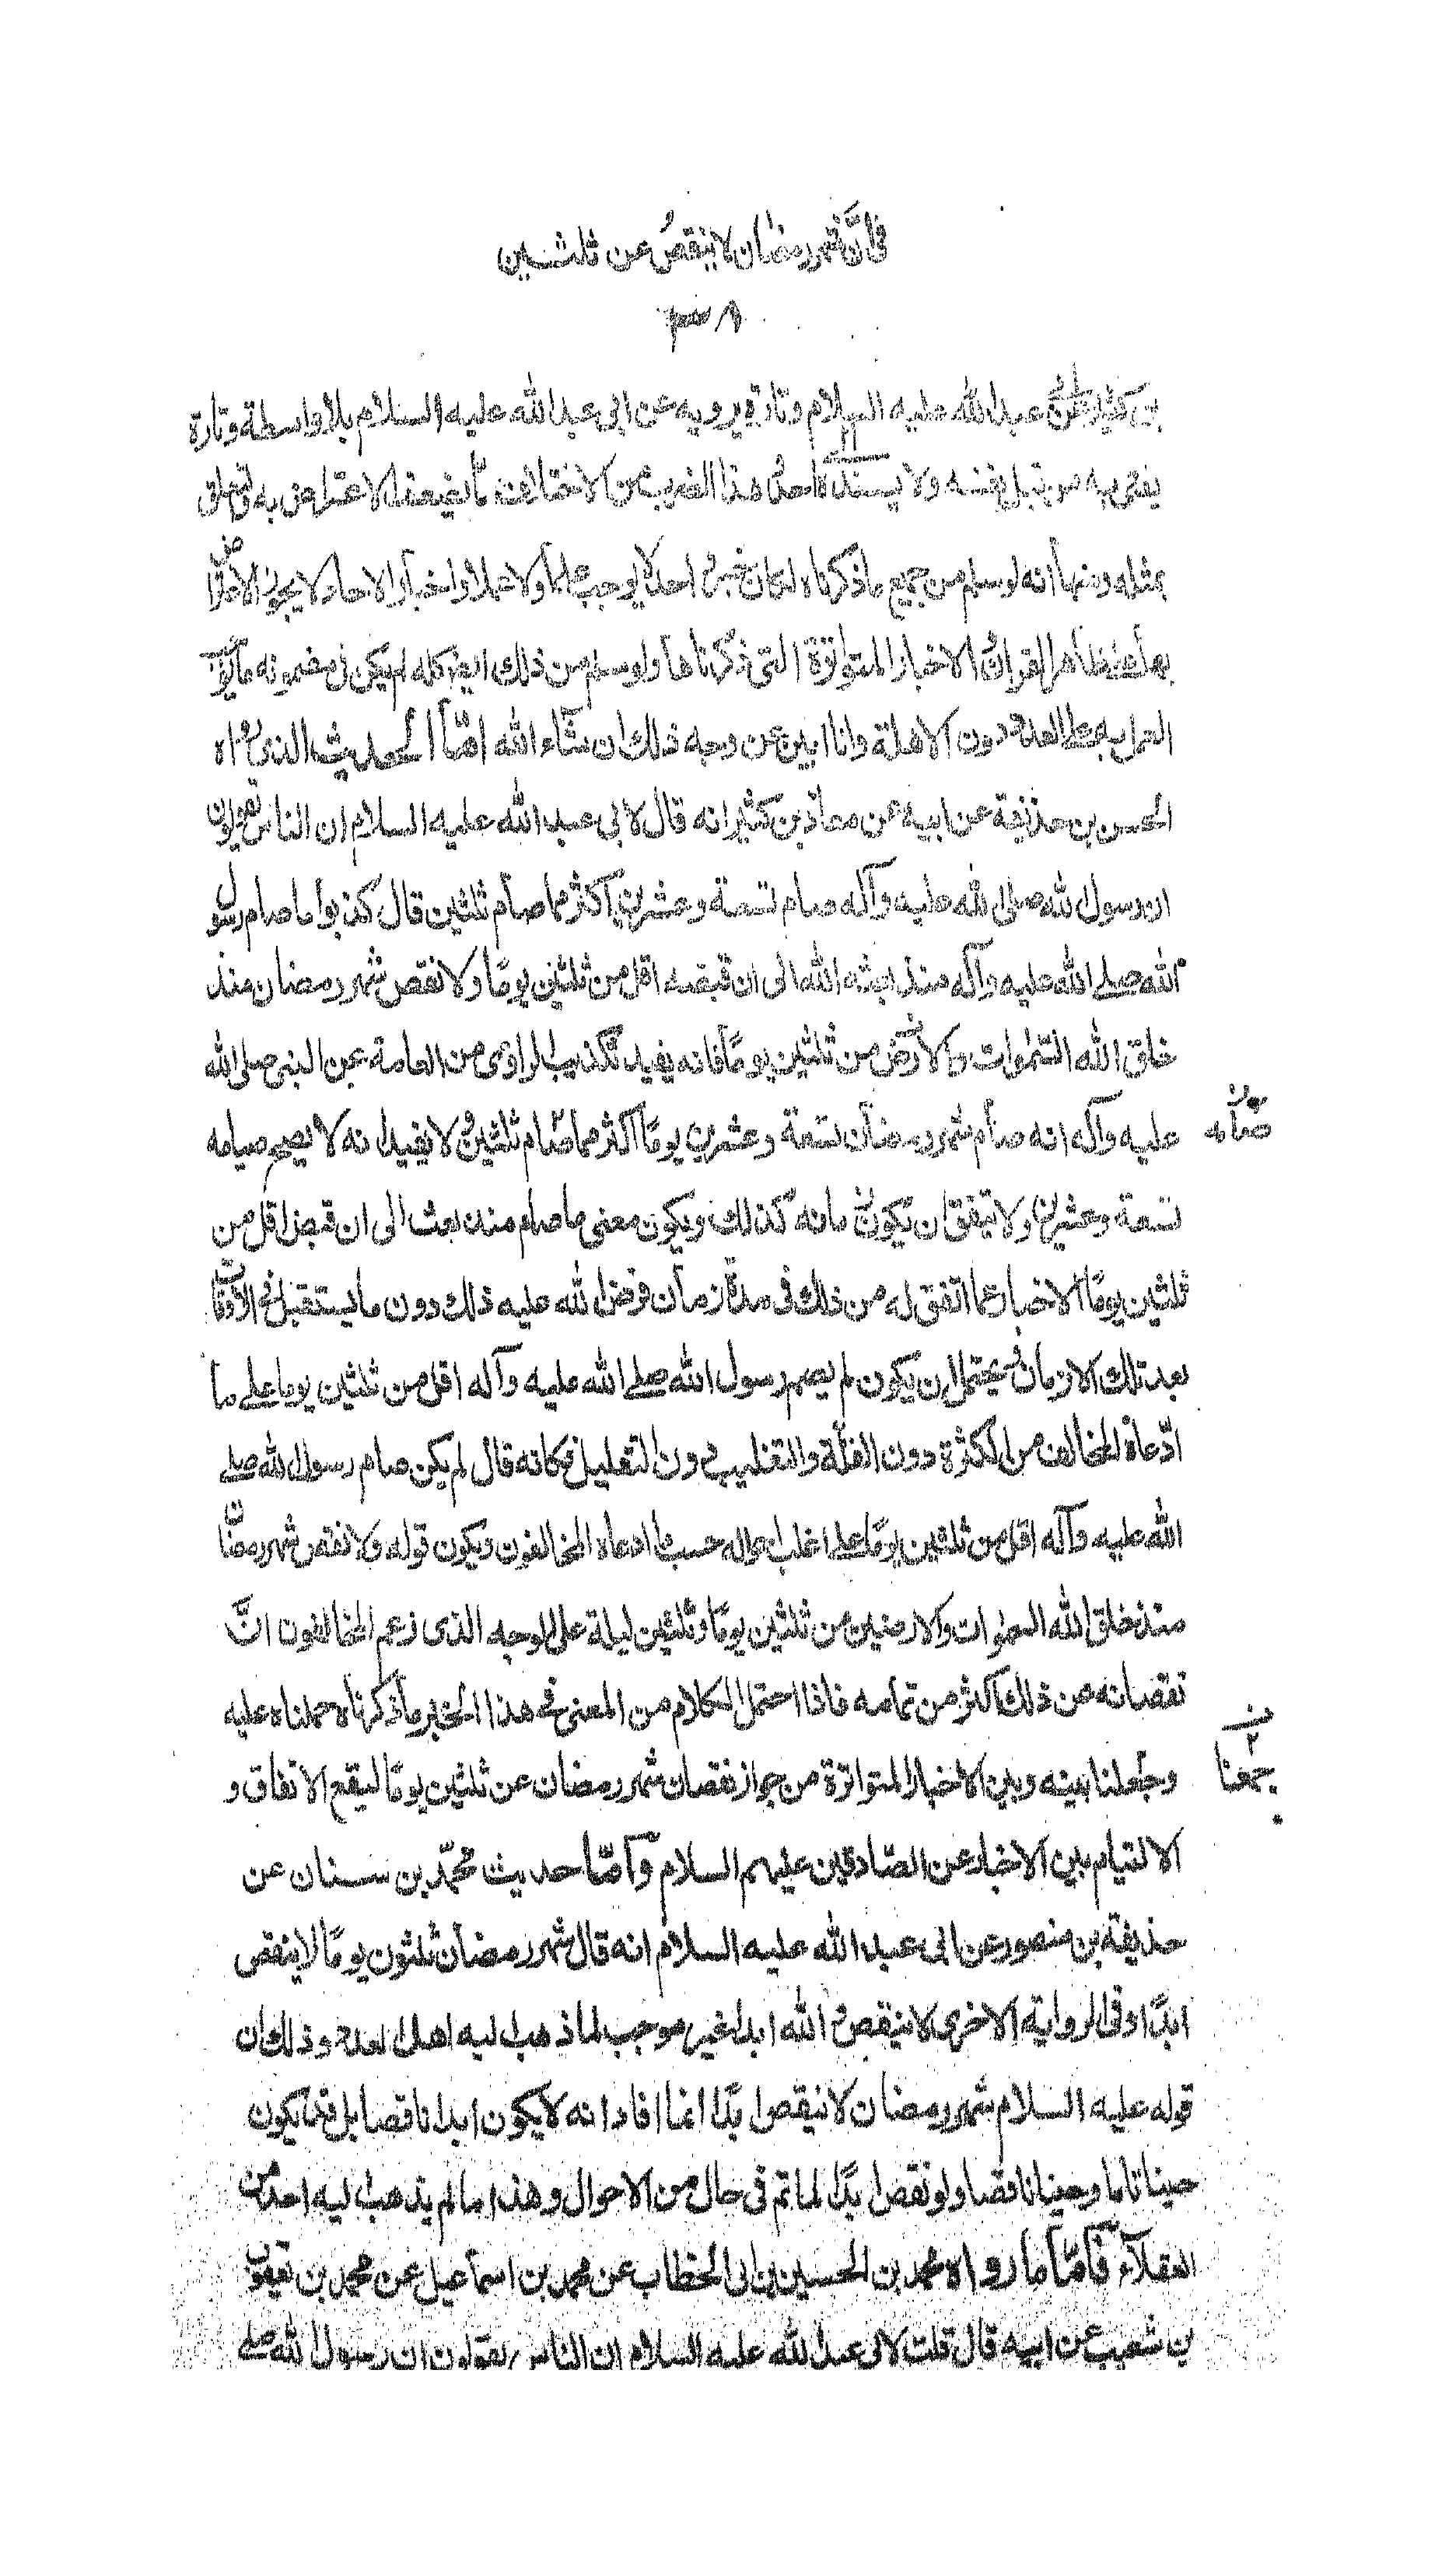 في أن شهر رمضان لا ينقص عن ثلثين
بن كثير عن أبي عبد الله عليه السلام وتارة يرويه عن ابي عبد الله عليه السلام بلا واسطة وتارة
يفتي به من قبل نفسه ولا يسنده الى احد وهذا الضرب من الاختلاف مما يضعف الاعتراض به والتعلق
بمثله ومنها أنه لو سلم من جميع ما ذكرناه لكان خبرا واحدا لا يوجب علما ولا عملا واخبار الاحاد لا يجوز الاعتراض
بها على ظاهر القرآن والاخبار المتواترة التي ذكرناها ولو سلم من ذلك ايضا كله لم يكن في مضمونه ما يوجب
العمل به على العدد دون الاهلة وانا ابين عن وجه ذلك ان شاء الله امّا الحديث الذي رواه
الحسن بن حذيفة عن ابيه عن معاذ بن كثير انه قال لابي عبد الله عليه السلام ان الناس يقولون
ان رسول الله صلى الله عليه وآله صام تسعة وعشرين اكثر مما صام ثلثين قال كذبوا ما صام رسول
الله صلى الله عليه وآله منذ بعثه الله الى ان قبضه اقل من ثلثين يومًا ولا نقص شهر رمضان منذ
خلق الله السموات والارض من ثلثين يومًا فانه يفيد تكذيب الراوي من العامة عن النبي صلى الله
عليه وآله انه صام شهر رمضان تسعة وعشرين يومًا اكثر مما صام ثلثين ولا يفيد انه لا يصح صيامه
صيامه
تسعة وعشرين ولا يتفق ان يكون زمانه كذلك ويكون معنى ما صام منذ بعث الى ان قبض اقل من
ثلثين يومًا الاخبار عما اتفق له من ذلك في مدة زمان فرض الله عليه ذلك دون ما يستقبل في الاوقات
بعد تلك الازمان ويحتمل ان يكون لم يصم رسول الله صلى الله عليه وآله اقل من ثلثين يوما على ما
ادّعاه المخالف من الكثرة دون القلّة والتغليب دون التقليل فكانه قال لم يكن صام رسول الله صلى
الله عليه وآله اقل من ثلثين يومًا على اغلب احواله حسب ما ادعاه المخالفون ويكون قوله ولا نقص شهر رمضان
منذ خلق الله السموات والارضين من ثلثين يومًا وثلثين ليلة على الوجه الذي زعم المخالفون انّ
نقصانه عن ذلك اكثر من تمامه فاذا احتمل الكلام من المعنى في هذا الخبر ما ذكرناه حملناه عليه
وجعلنا بينه وبين الاخبار المتواترة من جواز نقصان شهر رمضان عن ثلثين يومًا ليقع الاتفاق و
جمعنا
الالتيام بين الاخبار عن الصّادقين عليهم السلام وأمّا حديث محمّد بن سنان عن
حذيفة بن منصور عن ابي عبد الله عليه السلام انه قال شهر رمضان ثلثون يومًا لا ينقص
ابدًا وفي الرواية الاخرى لا ينقص والله ابدا غير موجب لما ذهب اليه اهل العدد وذلك ان
قوله عليه السلام شهر رمضان لا ينقص ابدًا انما افاد انه لا يكون ابدا ناقصا بل قد يكون
حينا تاما وحينا ناقصا ولو نقص ابدًا لما تم في حال من الاحوال وهذا ما لم يذهب اليه احد من
العقلاء فأمّا ما رواه محمد بن الحسين بن ابي الخطاب عن محمد بن اسمعيل عن محمد بن يعقوب
بن شعيب عن ابيه قال قلت لابي عبد الله عليه السلام ان الناس يقولون ان رسول الله صلى